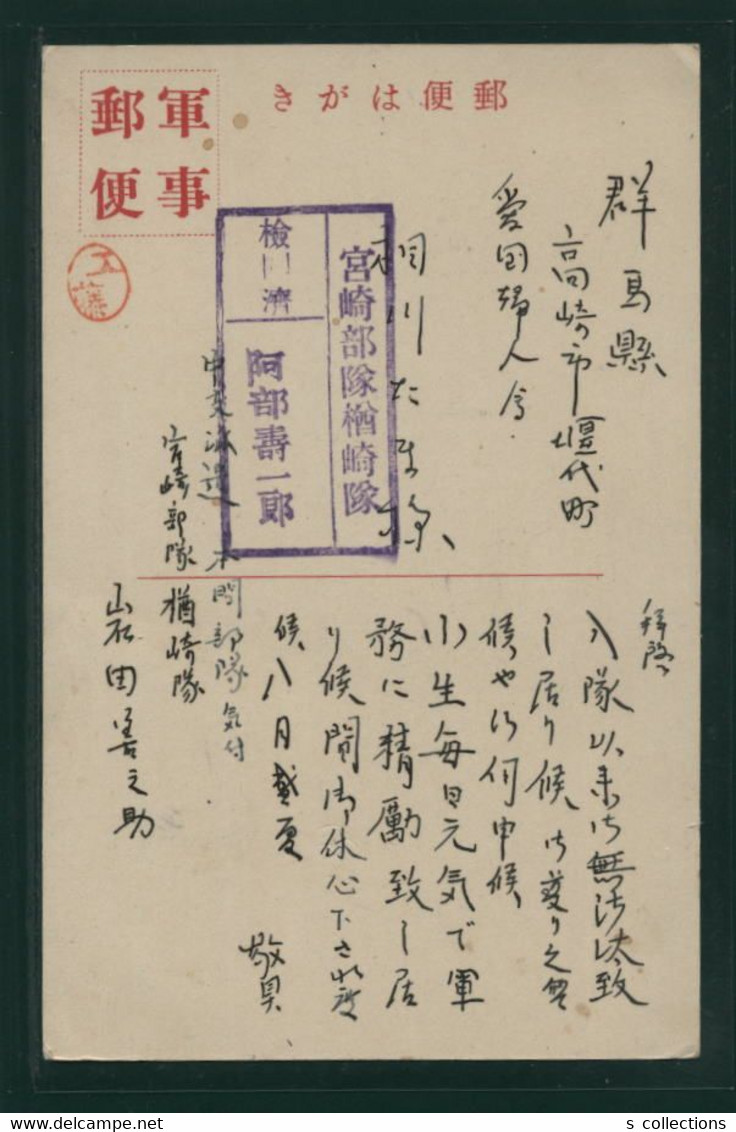 郵便はがき
軍事
郵便
群馬縣
高崎市堰代町
愛国婦人会
相川たま様
宮崎部隊楢崎隊
檢閲濟
阿部壽一郎
中支派遣 本間部隊気付
宮崎部隊 楢崎隊
岩田善之助
拝啓
入隊以来御無沙汰致
し居り候
候や御伺申候
小生毎日元気で軍
務に精励致し居
り候間御休心下され度
候 八月盛夏
敬具
s collections